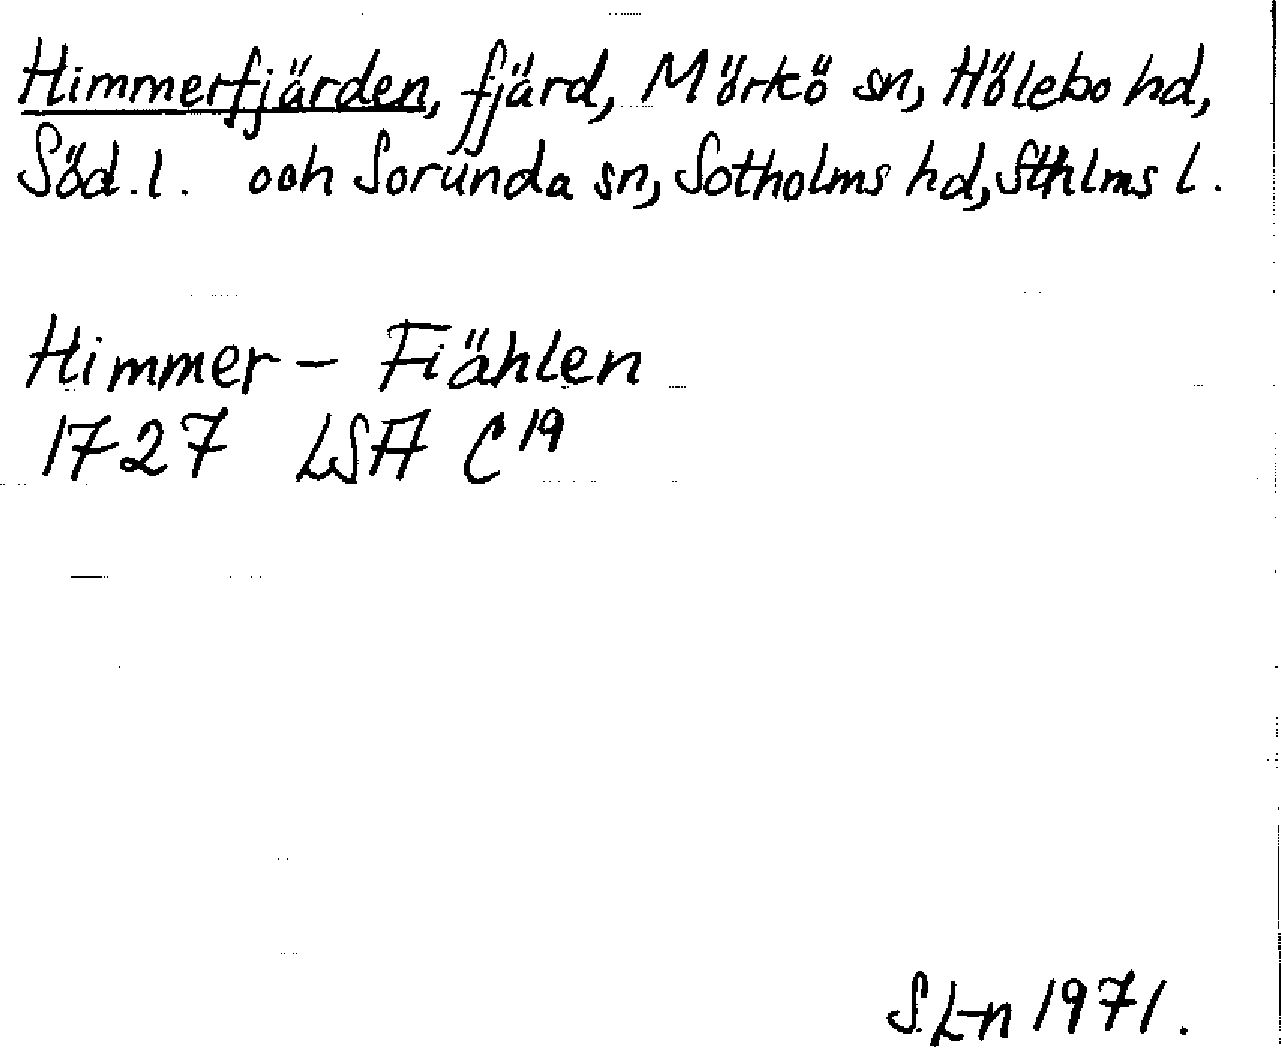 Himmerfjärden, fjärd, Mörkö sn, Hölebo hd,
Söd. l. och Sorunda sn, Sotholms hd, Sthlms l.
Himmer - Fiählen
1727 LSA C 19
S L-n 1971.